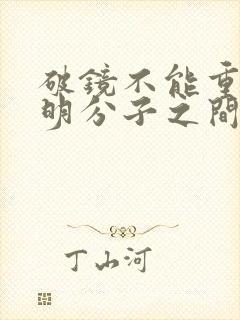 破鏡不能重
明分子之間
丁山河